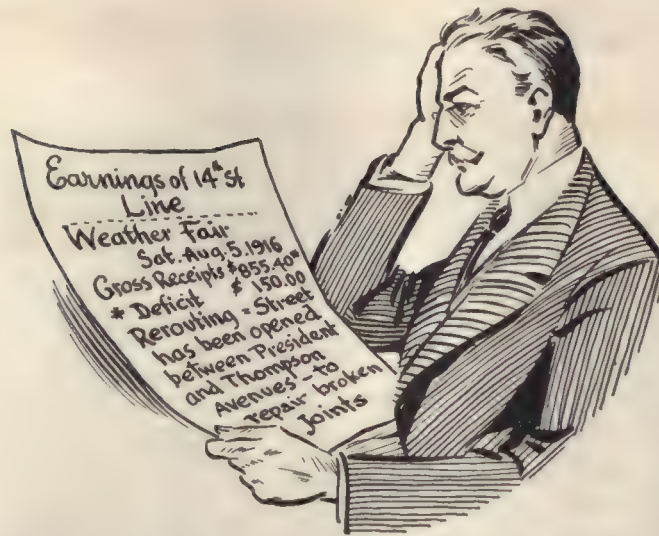 Earnings of 14th St
Line
Weather Fair
Sat. Aug. 5. 1916
Gross Receipts $855.40**
* Deficit $ 150.00
Rerouting = Street
has been opened
between President
and Thompson
Avenues - to
repair broken
Joints